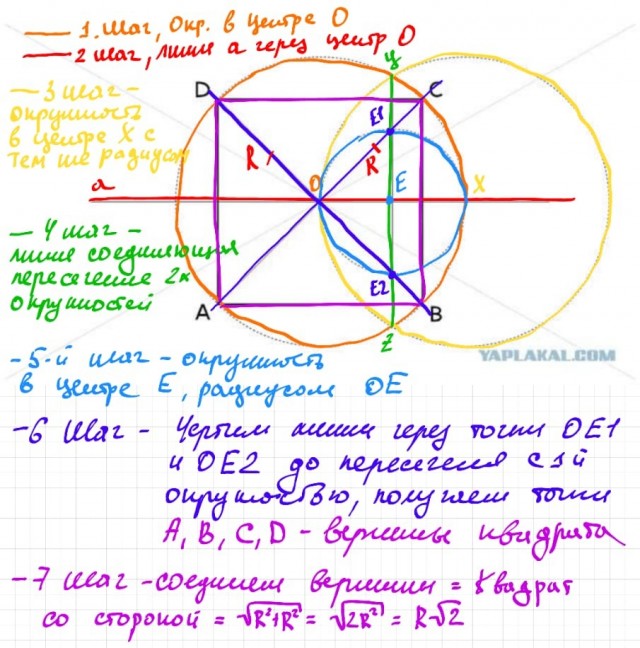 1. Шаг, Окр. в центре О
2 шаг, линия а через центр О
— 3 шаг -
окружность
в центре X с
тем же радиусом
D
C
У
E1
R
R
а
О
E
X
— 4 шаг -
линия соединяющая
пересечение 2х
окружностей
E2
A
B
Z
YAPLAKAL.COM
-5-й шаг - окружность
в центре E, радиусом OE
-6 Шаг - Чертим линии через точки OE1
и OE2 до пересечения с 1й
окружностью, получаем точки
A, B, C, D - вершины квадрата
-7 Шаг - соединяем вершины = квадрат
со стороной = √R²+R² = √2R² = R√2